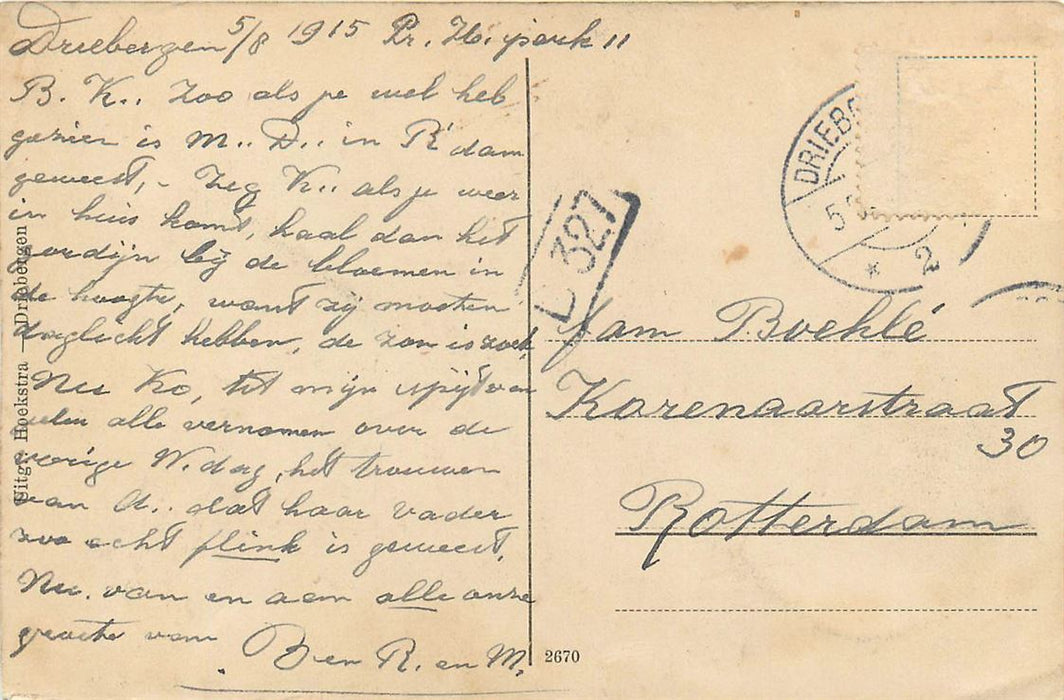 Driebergen 5/8 1915 Pr. H. park 11
B. K.. Zoo als je wel heb
gezien is M.. D.. in R'dam
geweest, - Zeg K.. als je weer
in huis komt, haal dan het
gordijn bij de bloemen in
de hoogte, want zij moeten
daglicht hebben, de zon is zoek
Nu Ko, tot mijn spijt van
velen alle vernomen over de
vorige W. dag, het trouwen
van A.. dat haar vader
zoo echt flink is geweest.
Nu. van en aan alle onze
groete van
B en R. en M.
Uitg. Hoekstra — Driebergen
2670
DRIEB
5
2
327
Fam Boehlé
Korenaarstraat
30
Rotterdam